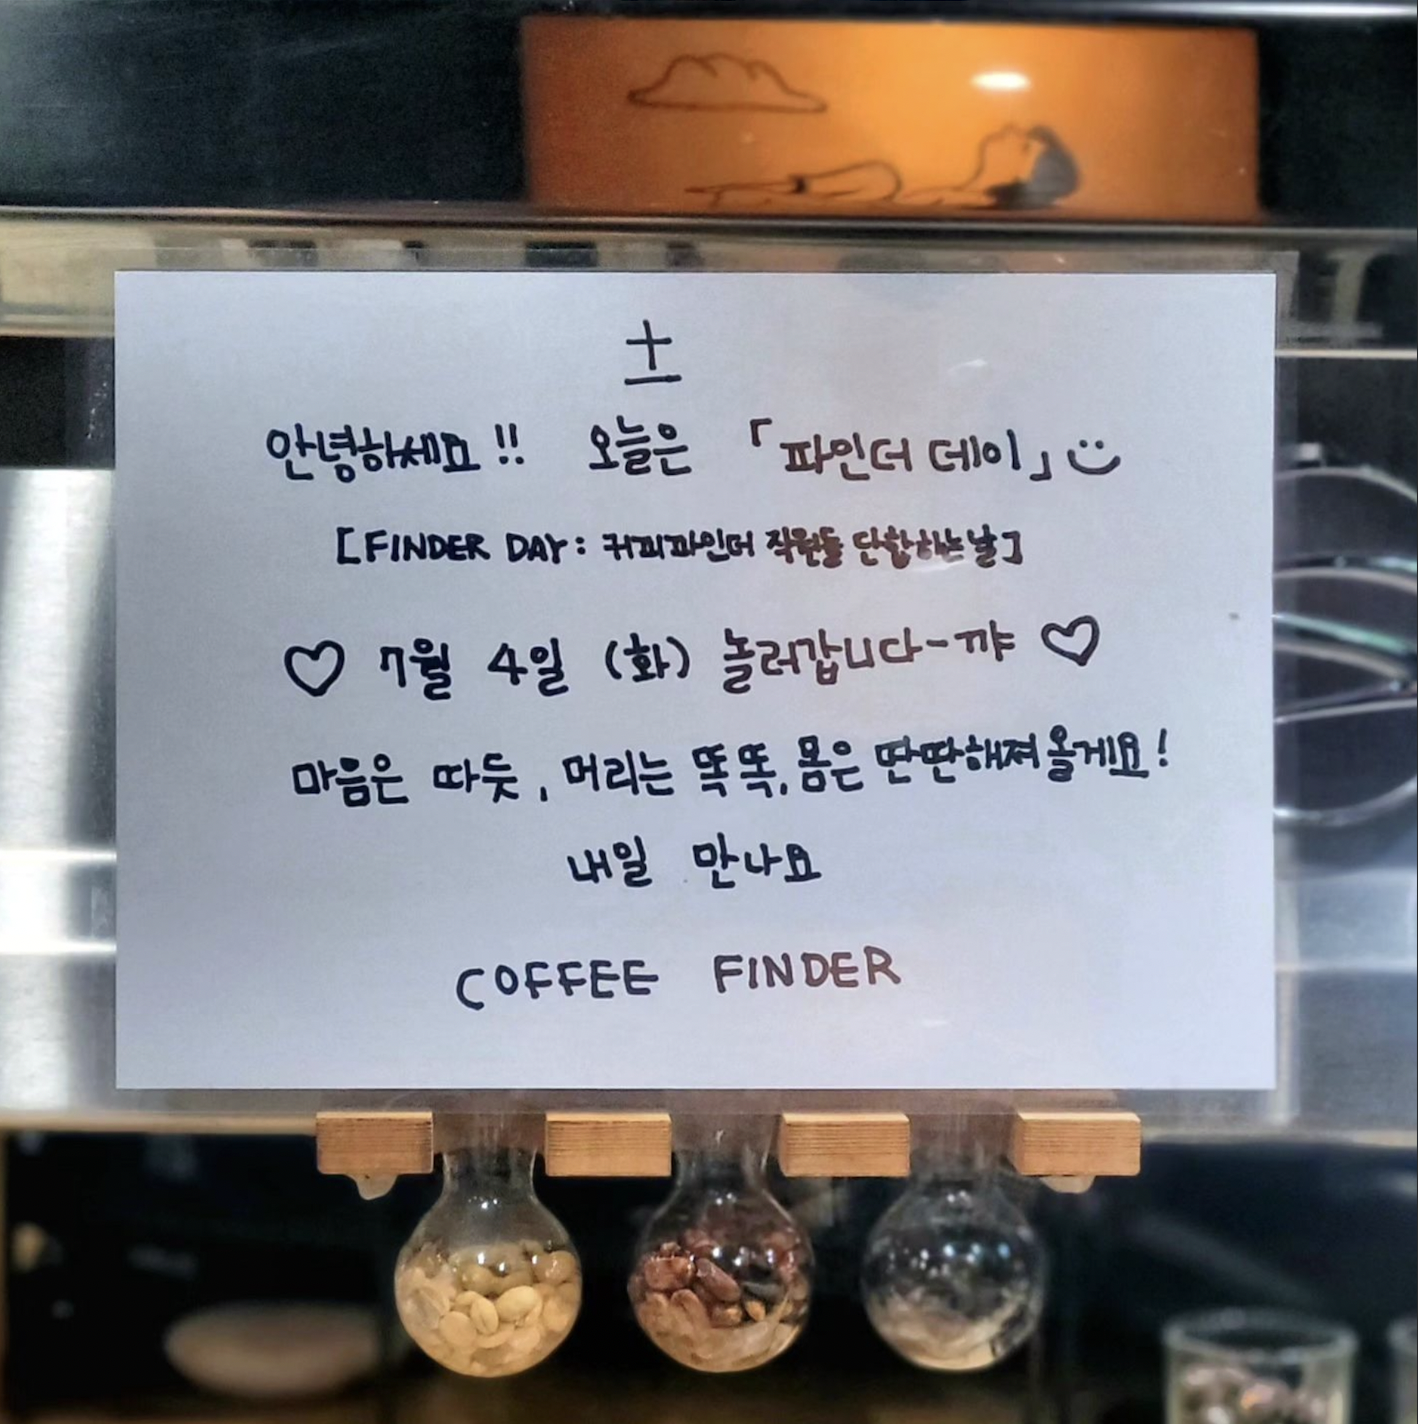 土
안녕하세요!! 오늘은 「파인더 데이」
[FINDER DAY: 커피파인더 직원들 단합하는날]
♡ 7월 4일 (화) 놀러갑니다-꺄 ♡
마음은 따듯, 머리는 똑똑, 몸은 딴딴해져올게요!
내일 만나요
COFFEE FINDER